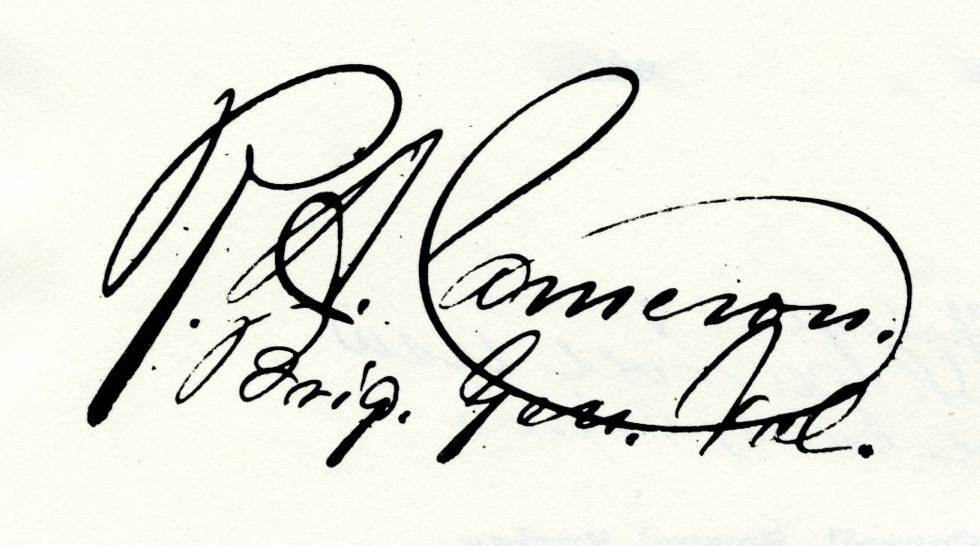 R. A. Cameron.
Brig. Gen. Vol.